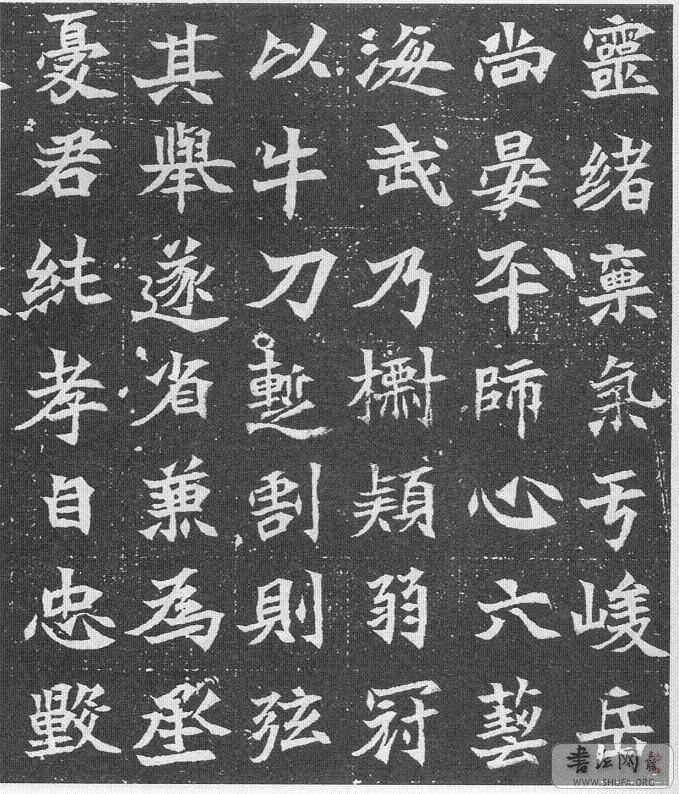 靈緒稟氣亏峻岳
尚晏平師心六藝
海武乃穎弱冠
以牛刀蹔割則弦
其舉遂省兼為丞
憂君純孝自忠
書法网
WWW.SHUFA.ORG